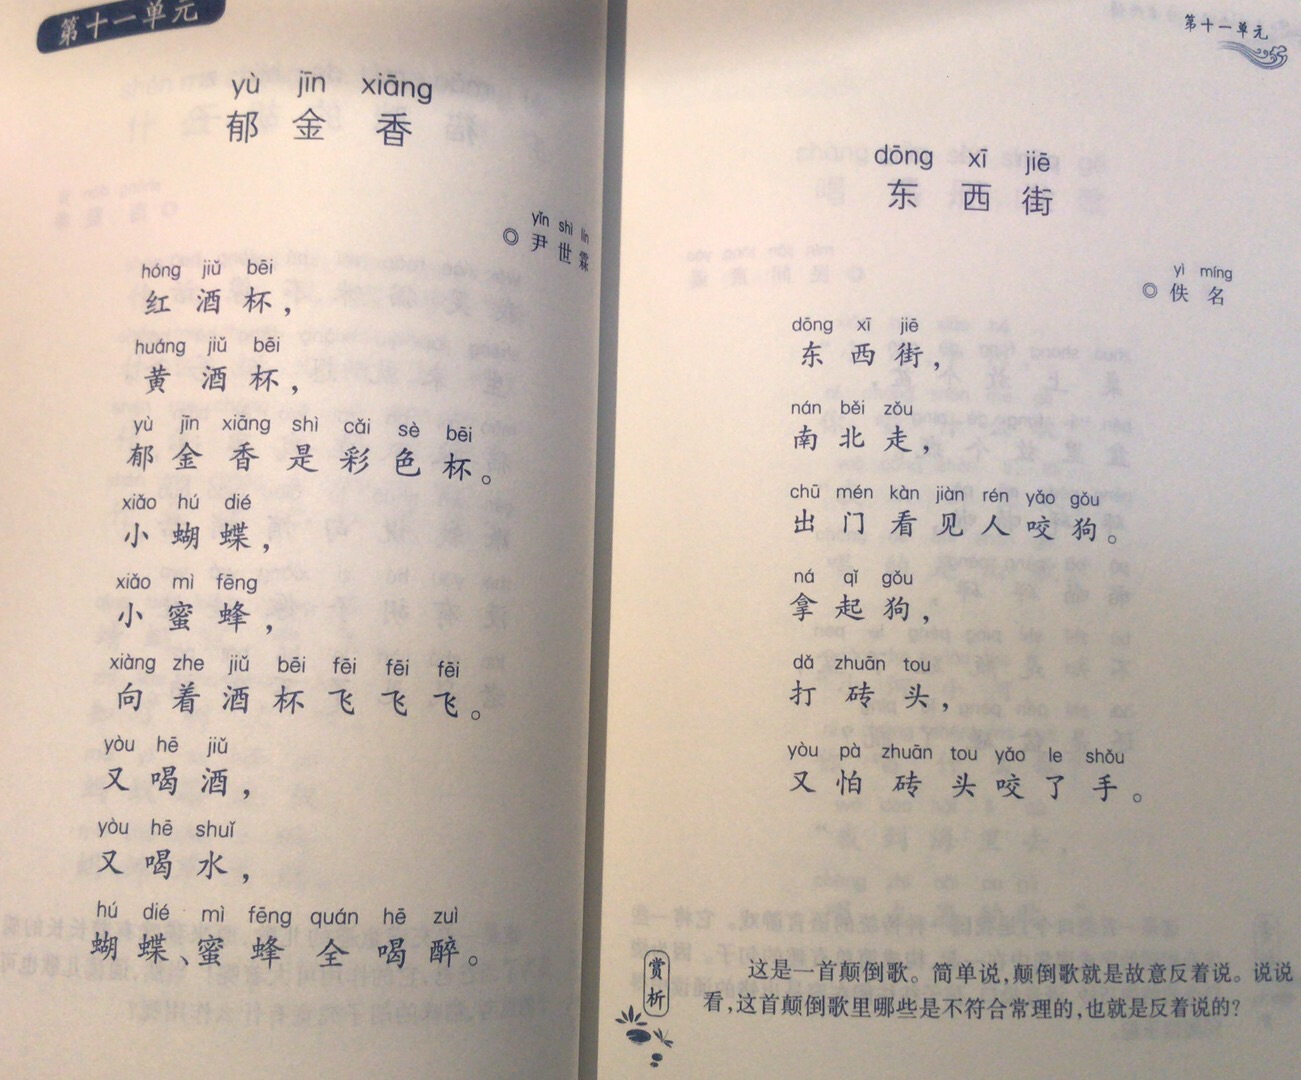 第十一单元
yù jīn xiāng
郁金香
yǐn shì lín
◎尹世霖
hóng jiǔ bēi
红酒杯，
huáng jiǔ bēi
黄酒杯，
yù jīn xiāng shì cǎi sè bēi
郁金香是彩色杯。
xiǎo hú dié
小蝴蝶，
xiǎo mì fēng
小蜜蜂，
xiàng zhe jiǔ bēi fēi fēi fēi
向着酒杯飞飞飞。
yòu hē jiǔ
又喝酒，
yòu hē shuǐ
又喝水，
hú dié mì fēng quán hē zuì
蝴蝶、蜜蜂全喝醉。
第十一单元
dōng xī jiē
东西街
yì míng
◎佚名
dōng xī jiē
东西街，
nán běi zǒu
南北走，
chū mén kàn jiàn rén yǎo gǒu
出门看见人咬狗。
ná qǐ gǒu
拿起狗，
dǎ zhuān tou
打砖头，
yòu pà zhuān tou yǎo le shǒu
又怕砖头咬了手。
赏析
这是一首颠倒歌。简单说，颠倒歌就是故意反着说。说说
看，这首颠倒歌里哪些是不符合常理的，也就是反着说的？